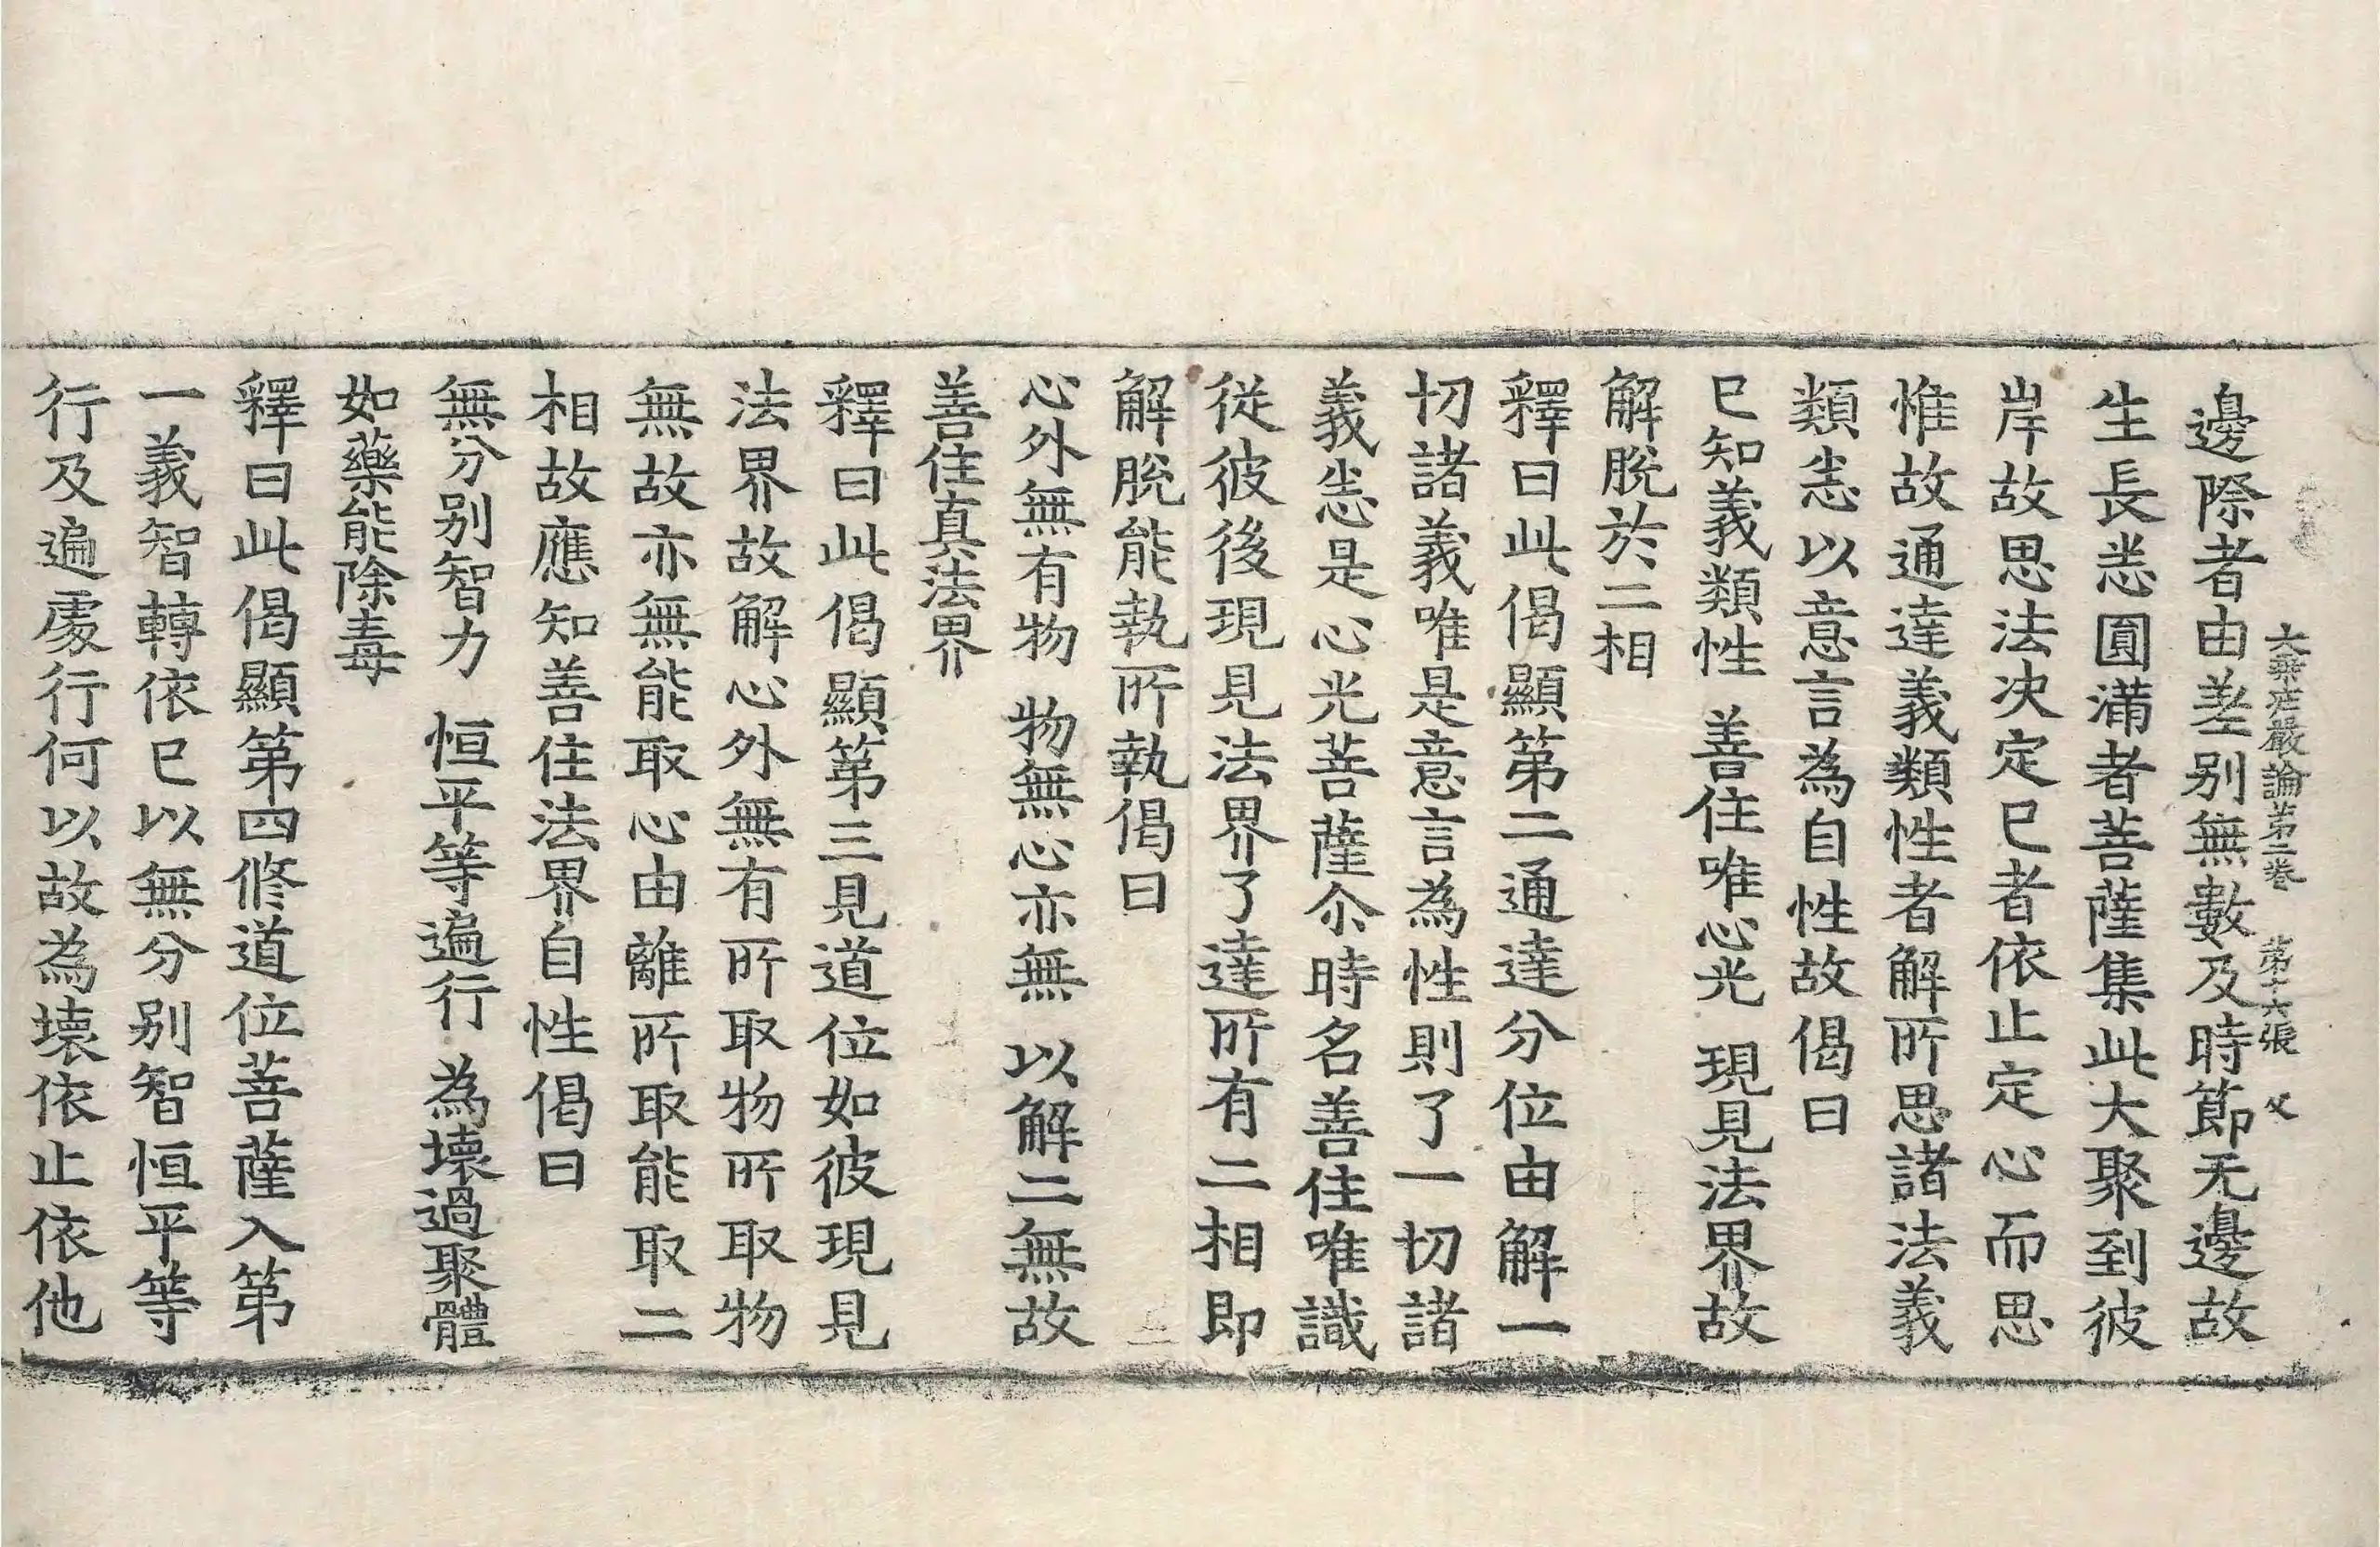 大乘莊嚴論第二卷 第十六張 父
邊際者由差别無數及時節无邊故
生長恙圓滿者菩薩集此大聚到彼
岸故思法决定已者依止定心而思
惟故通達義類性者解所思諸法義
類恙以意言為自性故偈曰
已知義類性 善住唯心光 現見法界故
解脫於二相
釋曰此偈顯第二通達分位由解一
切諸義唯是意言為性則了一切諸
義恙是心光菩薩尒時名善住唯識
從彼後現見法界了達所有二相即
解脫能執所執偈曰
心外無有物 物無心亦無 以解二無故
善住真法界
釋曰此偈顯第三見道位如彼現見
法界故解心外無有所取物所取物
無故亦無能取心由離所取能取二
相故應知善住法界自性偈曰
無分别智力 恒平等遍行 為壞過聚體
如藥能除毒
釋曰此偈顯第四修道位菩薩入第
一義智轉依已以無分别智恒平等
行及遍處行何以故為壞依止依他